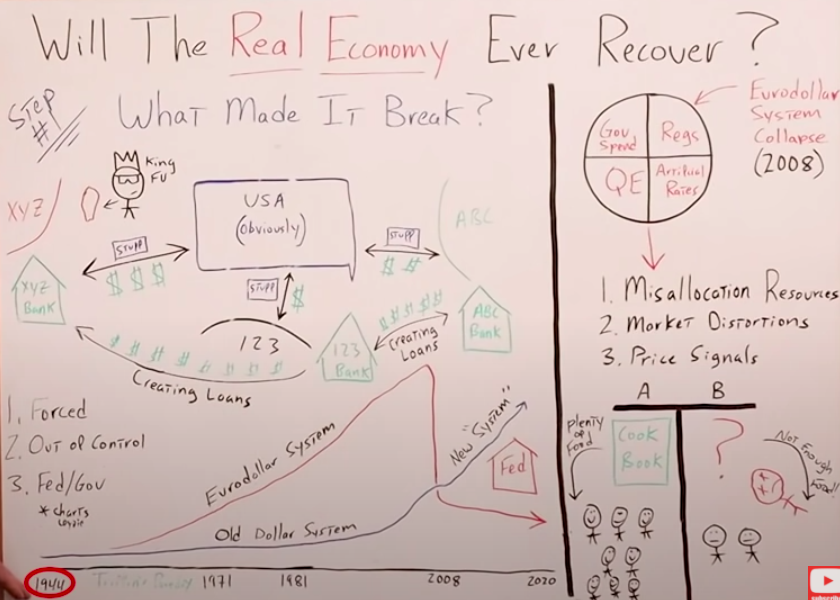 Will The Real Economy Ever Recover?
STEP
#1
What Made It Break?
King
FU
XYZ
USA
(Obviously)
ABC
STUFF
$ $ $
STUFF
$ $
STUFF
$
XYZ
Bank
123
123
Bank
ABC
Bank
$ $ $ $ $
Creating
Loans
$ $ $ $ $ $ $
Creating Loans
1. Forced
2. Out of Control
3. Fed/Gov
* charts
Eurodollar System
Old Dollar System
New "System"
Fed
1944
1971
1981
2008
2020
Gov
Spend
Regs
QE
Artificial
Rates
Eurodollar
System
Collapse
(2008)
1. Misallocation Resources
2. Market Distortions
3. Price Signals
A
B
Plenty
of
Food
Cook
Book
?
Not Enough
Food!!